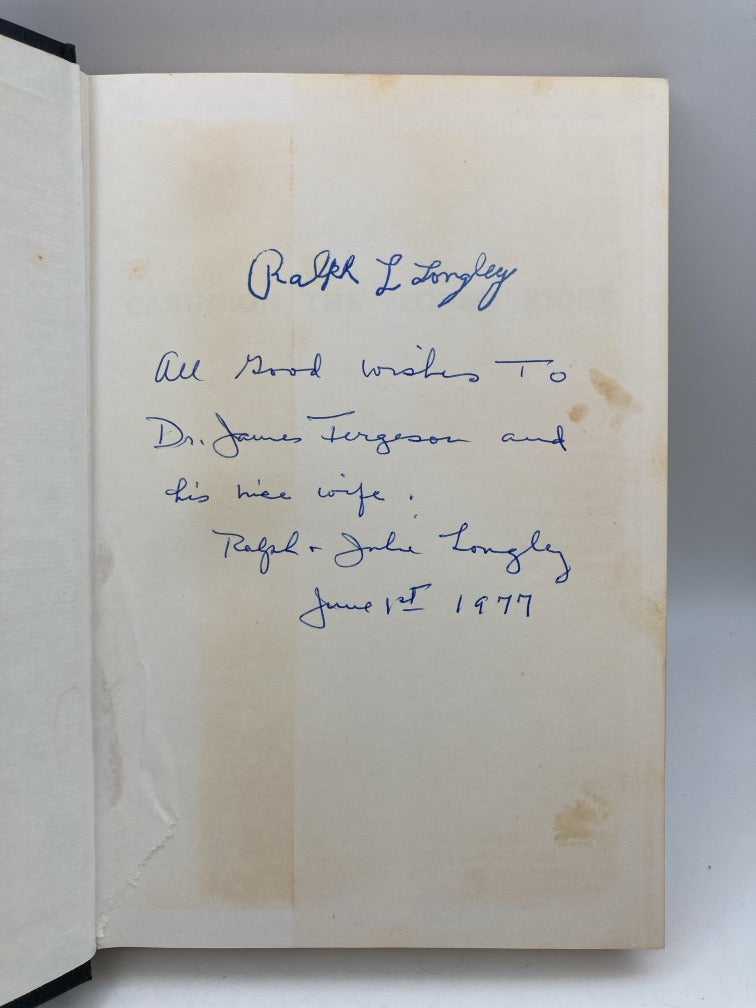 Ralph L Longley
All Good wishes To
Dr. James Fergeson and
his nice wife.
Ralph + Julie Longley
June 1st 1977
CABIN ON THE